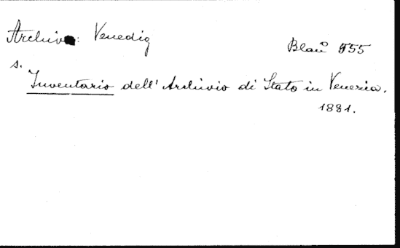 Archiv: Venedig
Blau 955
s.
Inventario dell' Archivio di Stato in Venezia.
1881.